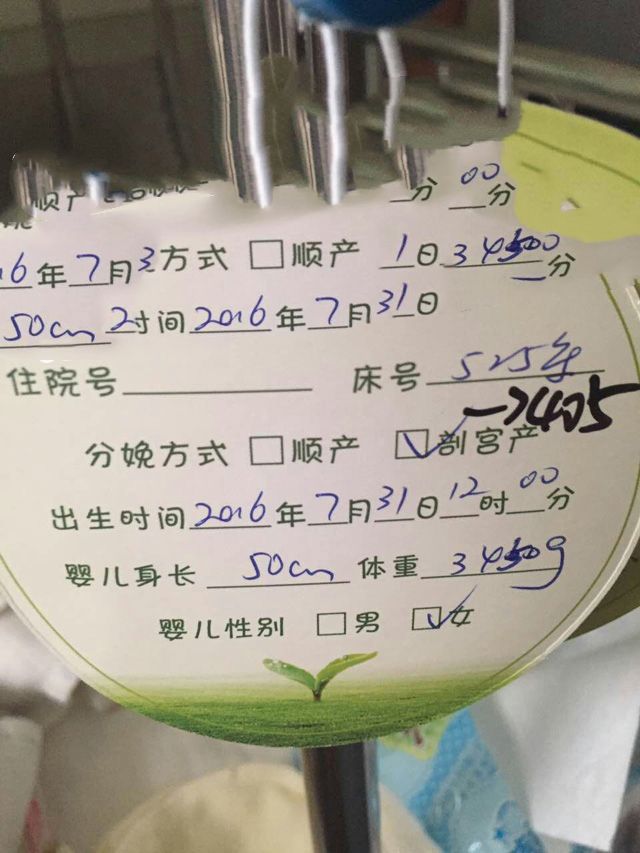 顺产
分 00分
6年7月3方式 □顺产 1日345000分
50cm 2时间2016年7月31日
住院号 床号525
→405
分娩方式 □顺产 ☑剖宫产
出生时间2016年7月31日12时00分
婴儿身长 50cm 体重 3450g
婴儿性别 □男 ☑女